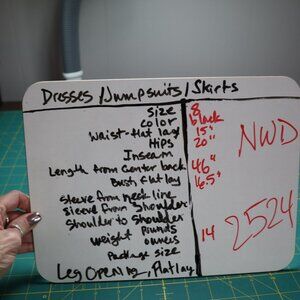 Dresses/Jumpsuits/Skirts
Size 8
Color black
Waist-flat lay 15"
Hips 20"
Inseam
Length from Center back 46"
Bust flat lay 16.5"
Sleeve from Neck line
Sleeve from Shoulder
Shoulder to Shoulder
Weight Pounds
ounces 14
Package Size
Leg Opening, Flatlay
NWD
2524